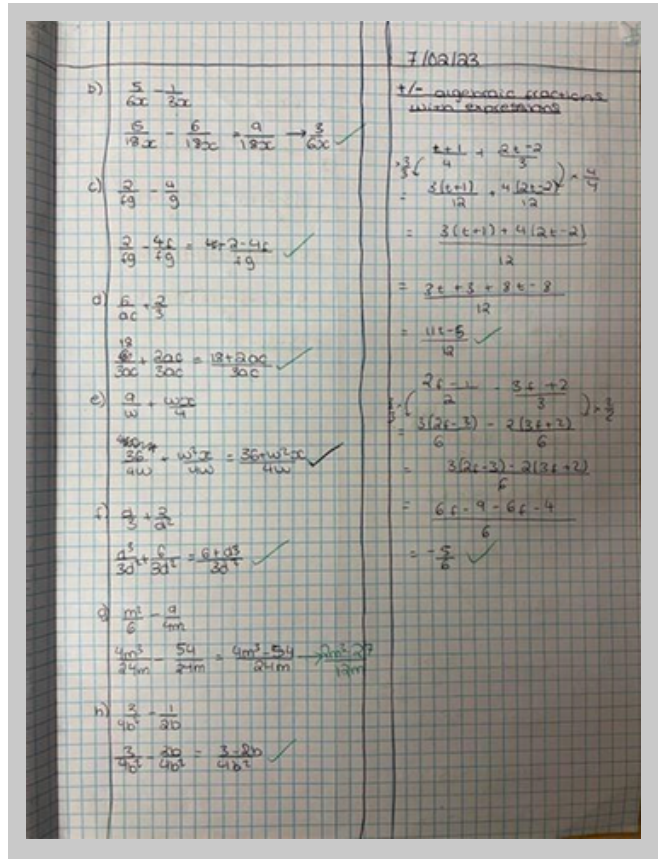 b) 5/6x - 1/3x
/18x - 6/18x = 9/18x → 3/6x ✓
c) 2/fg - 4/g
2/fg - 4f/fg = 2-4f/fg ✓
d) 6/ac + 2/3
18/3ac + 2ac/3ac = 18+2ac/3ac ✓
e) 9/w + wx/4
36/4w + w²x/4w = 36+w²x/4w ✓
f) d/3 + 2/d²
d³/3d² + 6/3d² = 6+d³/3d² ✓
g) m²/6 - 9/4m
4m³/24m - 54/24m = 4m³-54/24m → 2m³-27/12m
h) 3/4b² - 1/2b
3/4b² - 2b/4b² = 3-2b/4b² ✓
7/02/23
+/- algebraic fractions
with expressions
×3/3 ( t+1/4 + 2t-2/3 ) × 4/4
= 3(t+1)/12 + 4(2t-2)/12
= 3(t+1) + 4(2t-2)/12
= 3t + 3 + 8t - 8/12
= 11t-5/12 ✓
( 2f - /2 - 3f + 2/3 )
= 3(2f-3)/6 - 2(3f+2)/6
= 3(2f-3) - 2(3f+2)/6
= 6f - 9 - 6f - 4/6
= -5/6 ✓